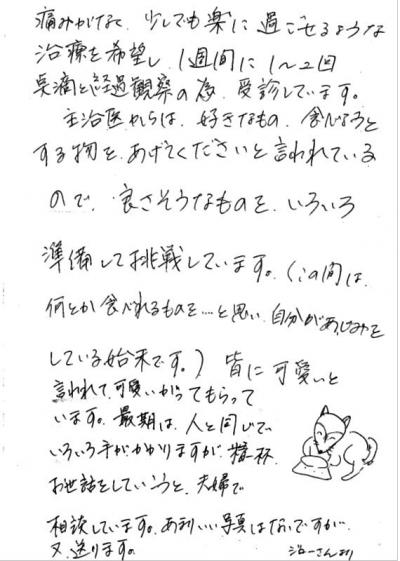 痛みがなく、少しでも楽に過ごせるような
治療を希望し、1週間に1〜2回
点滴と経過観察の為、受診しています。
主治医からは、好きなもの、食べようと
する物を、あげてくださいと言われている
ので、良さそうなものを、いろいろ
準備して挑戦しています。(この間は、
何とか食べれるものを……と思い、自分があじみを
している始末です。) 皆に可愛いと
言われて、可愛いがってもらって
います。最期は、人と同じで、
いろいろ手がかかりますが、精一杯、
お世話をしていこうと、夫婦で
相談しています。あまりいい写真はないですが、
又、送ります。